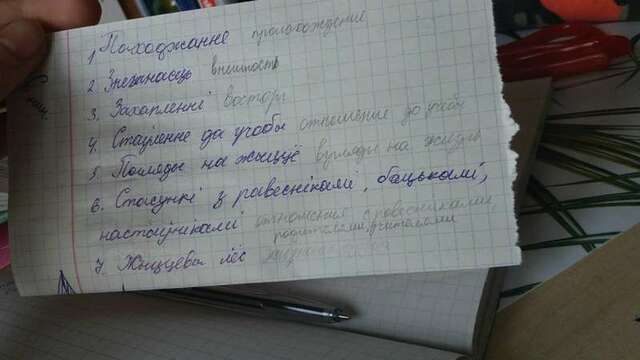 1. Паходжанне происхождение
2. Знешнасць внешность
3. Захапленні восторг
4. Стаўленне да вучобы отношение до учёбы
5. Погляды на жыццё взгляды на жизнь
6. Стасункі з равеснікамі, бацькамі,
настаўнікамі отношения с ровесниками,
родителями, учителями
7. Жыццёвы лёс